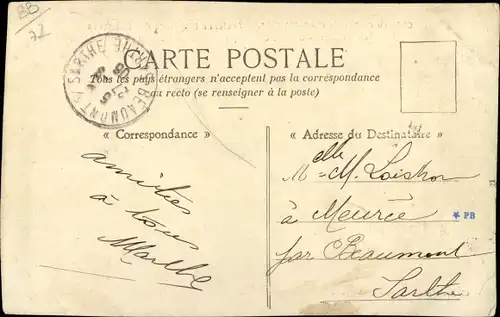 BB
72
BEAUMONT S/ SARTHE
CARTE POSTALE
Tous les pays étrangers n'acceptent pas la correspondance
au recto (se renseigner à la poste)
« Correspondance »
« Adresse du Destinataire »
amitiés
à tous
Marthe
Melle M.
à Meurcé
par Beaumont
Sarthe
* PB